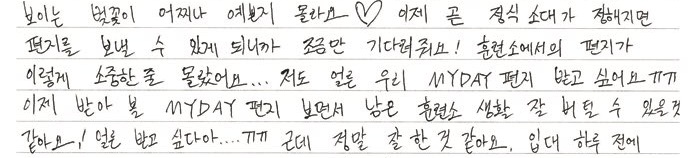 보이는 벚꽃이 어찌나 예쁘지 몰라요♡ 이제 곧 정식 소대가 정해지면
편지를 보낼 수 있게 되니까 조금만 기다려줘요! 훈련소에서의 편지가
이렇게 소중한 줄 몰랐어요... 저도 얼른 우리 MYDAY 편지 받고 싶어요ㅠㅠ
이제 받아 볼 MYDAY 편지 보면서 남은 훈련소 생활 잘 버틸 수 있을것
같아요! 얼른 받고 싶다아....ㅠㅠ 근데 정말 잘 한 것 같아요, 입대 하루 전에